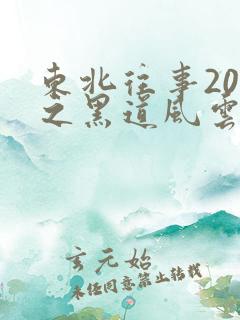 東北往事20
之黑道風雲
玄元始
未经同意禁止转载